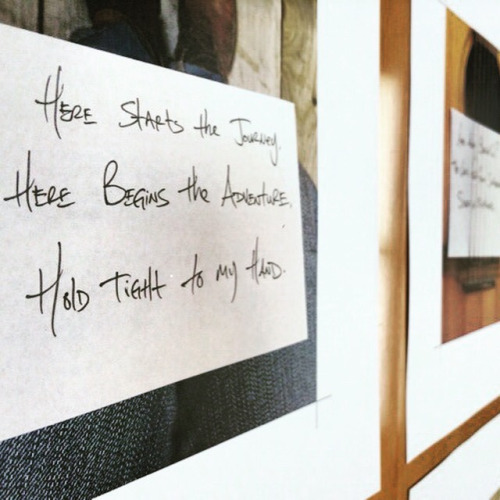 Here Starts the Journey.
Here Begins the Adventure.
Hold tight to my Hand.